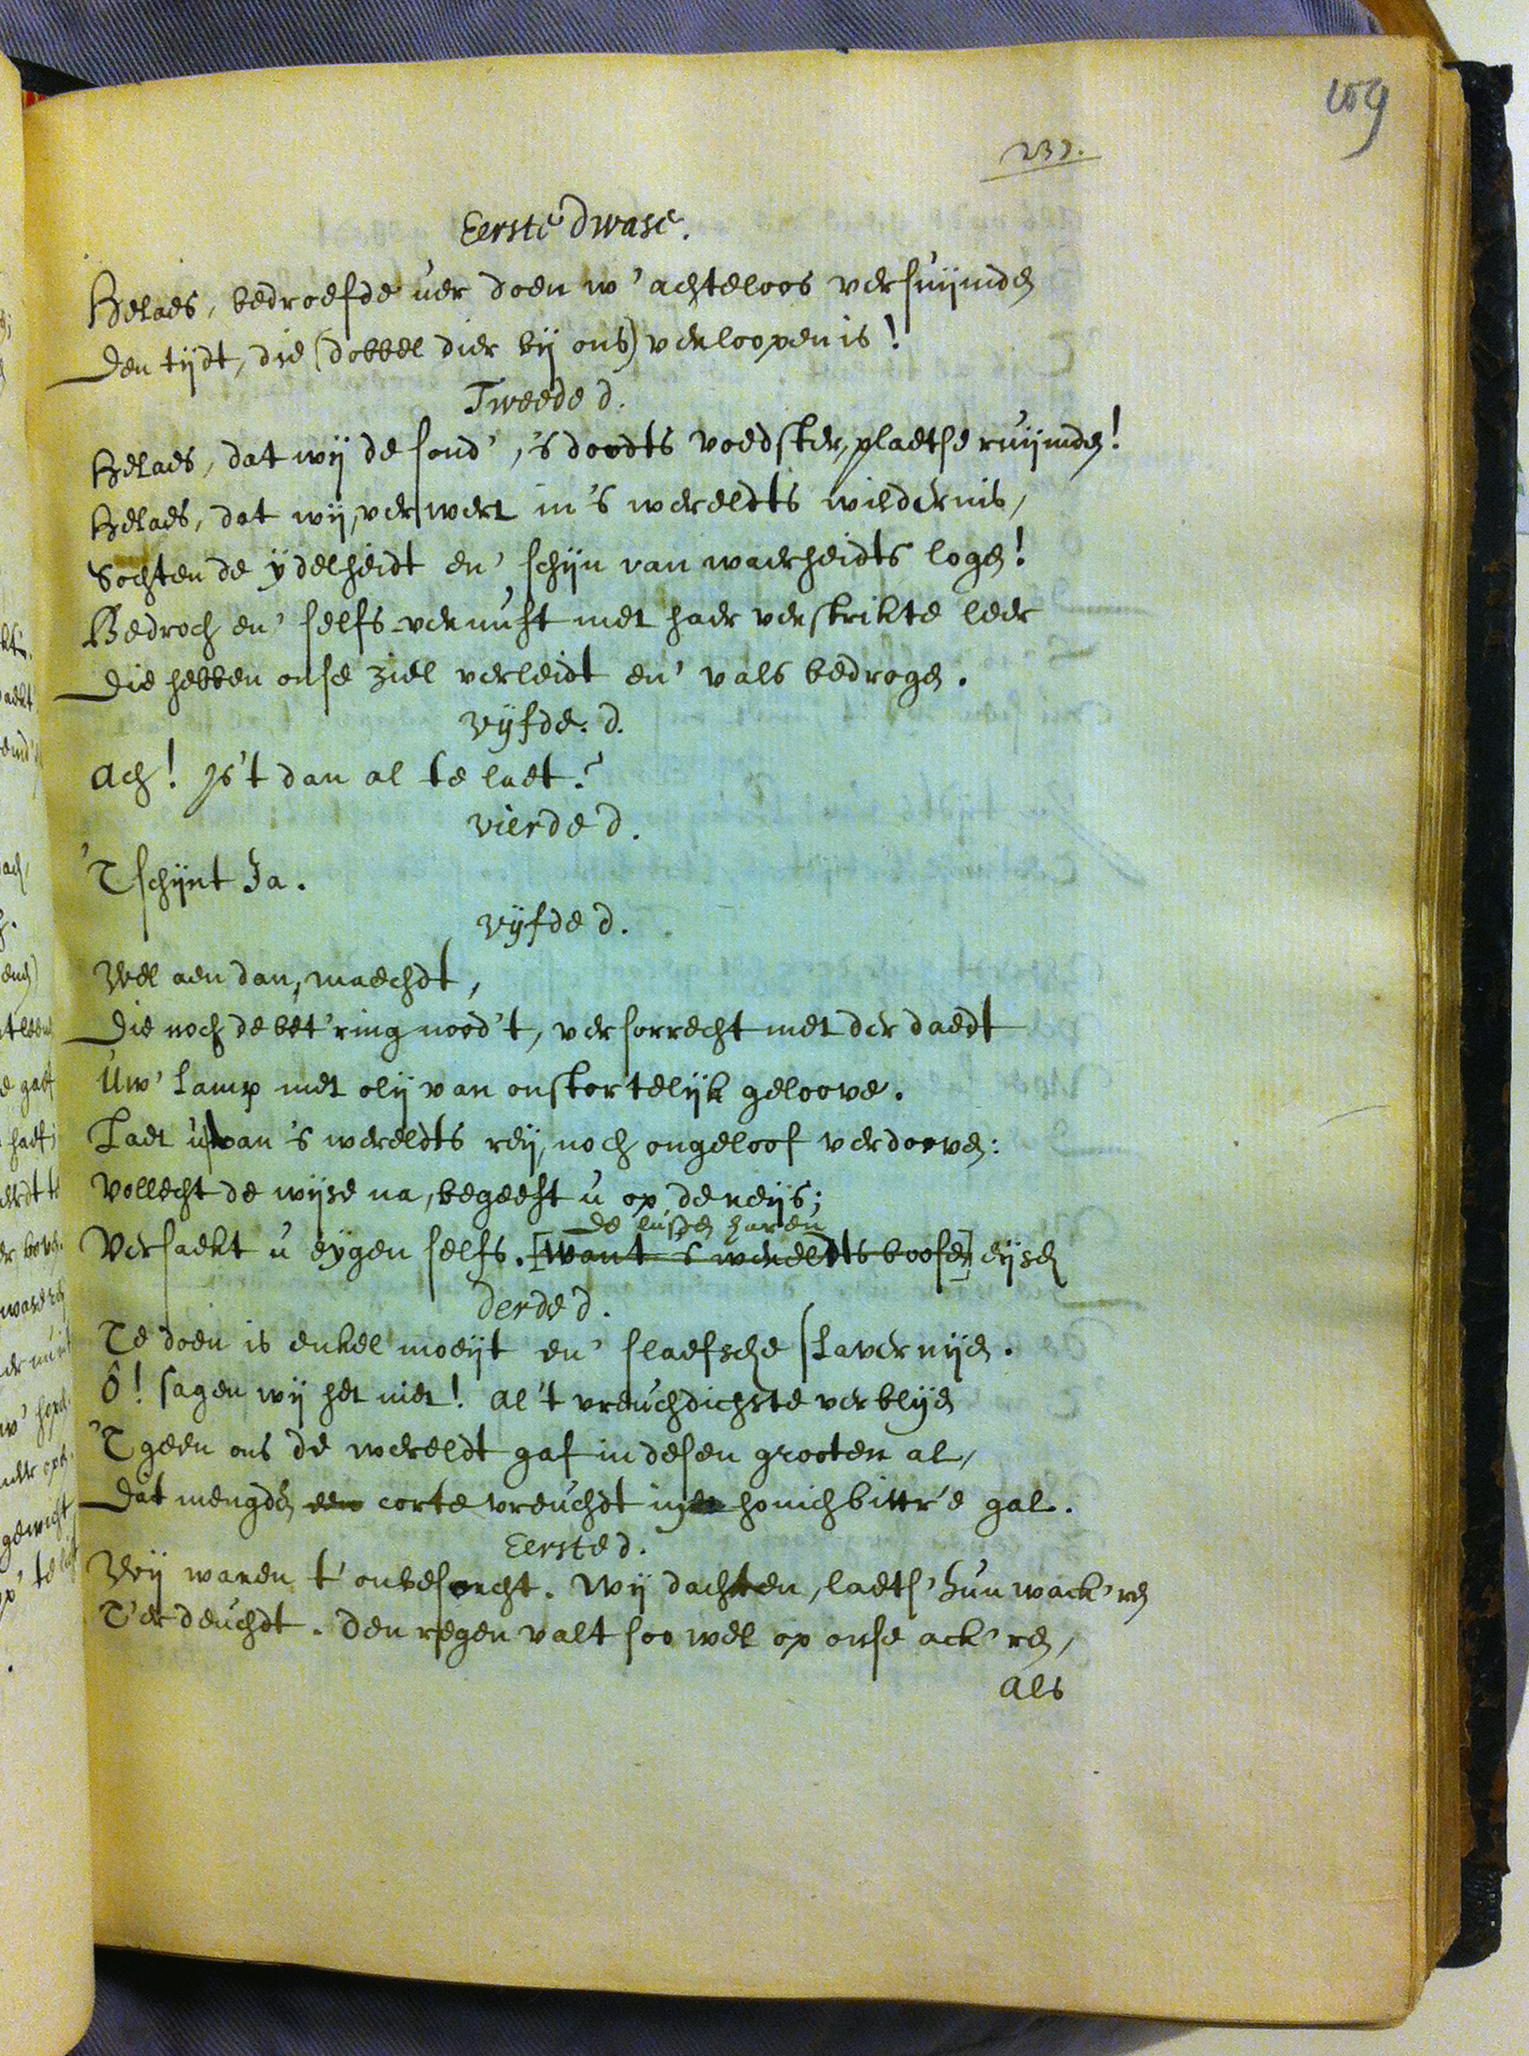 109
232.
Eerste dwase.
Helaes, bedroefde uer doen w' achteloos versuijmden
Den tijdt, die (dobbel dier bij ons) verloopen is!
Tweede d.
Helaes, dat wij de sond', 's doodts voedster, plaetse ruijmden!
Helaes, dat wij, verwert in 's wereldts wildernis,
Sochten de ydelheidt en' schijn van waerheidts logen!
Bedroch en' selfs-vernuft met haer verstrikte leer
Die hebben onse ziel verleidt en' vals bedrogen.
Vijfde. d.
Ach! Is't dan al te laet?
Vierde d.
'T schijnt Ja.
Vijfde d.
Wel aen dan, maechdt,
Die noch de bet'ring nood't, versorrecht met der daedt
Uw' lamp met olij van onstortelijk geloove.
Laet u van 's wereldts reij, noch ongeloof verdooven:
Vollecht de wijse na, begeeft u op de reijs;
de lusten haren
Versaekt u eygen selfs. [want 's wereldts boose] eijsen
Derde d.
Te doen is enkel moeijt en' slaefsche slavernijen.
Ô! sagen wij het niet! al 't vreuchdichste verblijen
'T geen ons de wereldt gaf in desen grooten al,
Dat mengden een corte vreuchdt in honichbittr'e gal.
Eerste d.
Wij waren t' onbesorcht. Wij dachten, laets' hun wack'ren
T'er deuchdt. Den regen valt soo wel op onse ack'ren,
Als